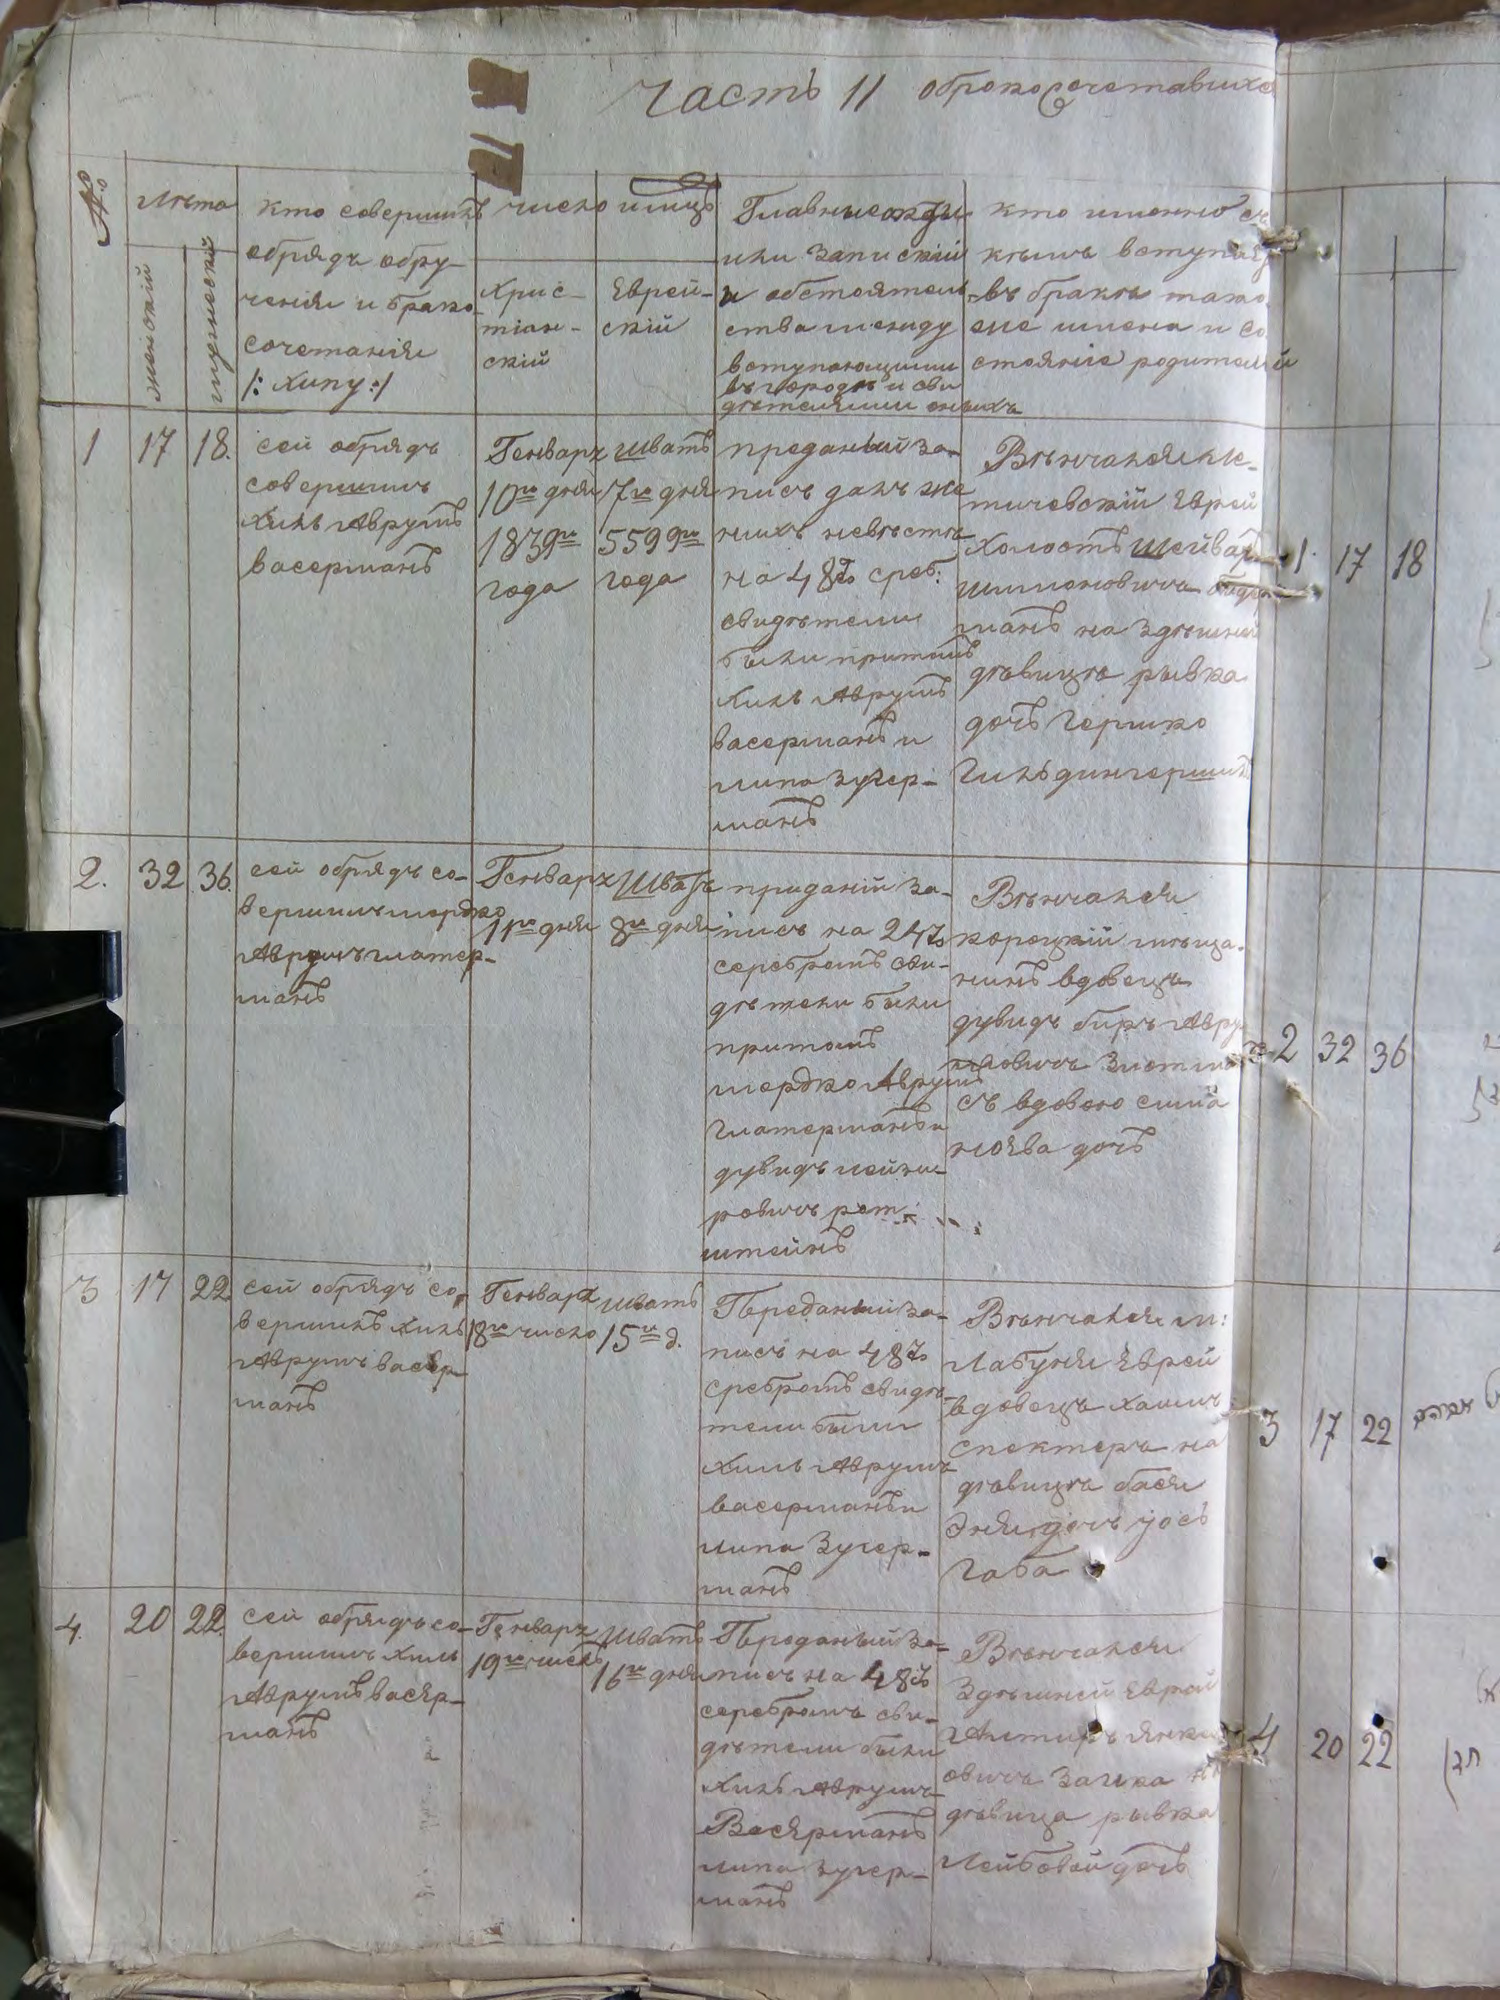 Часть II о бракосочетавшихся
№
Лѣта
женскій
мужескій
кто совершилъ
обрядъ обру-
ченія и брако-
сочетанія
/: хипу :/
число и мѣцъ
Хрис-
тіан-
скій
Еврей-
скій
Главные
или записий
и обстоятель-
ства между
вступающими
въ городѣ и сви
дѣтелями оныхъ
кто именно съ
кѣмъ вступ
въ бракъ также
еще имена и со
стояніе родителей
1
17
18.
сей обрядъ
совершилъ
Хиль Аврумъ
васерманъ
Генваря
10го дня
1839го
года
Шватъ
7го дня
5599го
года
преданый за-
писъ далъ же
нихъ невѣстѣ
на 48 среб:
свидѣтели
были притомъ
Хиль Аврумъ
васерманъ и
липа зугер-
манъ
Вѣнчался
тичевскій Еврей
холостъ
Шлиомовичъ
манъ на здѣшней
дѣвицѣ рывка
дочъ Гершко
Гильдингершъ
1 17 18
2.
32
36.
сей обрядъ со-
вершилъ мордко
Аврумъ глатер-
манъ
Генваря
11го дня
Шватъ
8го дня
приданій за-
писъ на 24
серебромъ сви-
дѣтели были
притомъ
мордко Аврумъ
Глатерманъ и
дувидъ лейзи-
ровичъ рот
штейнъ
Вѣнчался
корецкій мѣща-
нинъ вдовецъ
дувидъ биръ Авру
мовичъ
съ вдовою сима
дочъ
2 32 36
3
17
22.
сей обрядъ со-
вершилъ Хиль
Аврумъ васер
манъ
Генваря
18го число
Шватъ
15го д.
Переданый за-
писъ на 48
сребромъ свидѣ-
тели были
Хиль Аврумъ
васерманъ и
липа Зугер-
манъ
Вѣнчался м:
Лабуня Еврей
вдовецъ хаимъ
спектеръ на
дѣвицѣ бася
Эня дочъ Jось
Габа
3 17 22
4.
20
22.
сей обрядъ со-
вершилъ Хиль
Аврумъ васер-
манъ
Генваря
19го число
Шватъ
16го дня
Переданый за-
писъ на 48
серебромъ сви-
дѣтели были
Хиль Аврумъ
Васерманъ
липа зугер-
манъ
Вѣнчался
Здѣшней Еврей
янкел
овичъ
дѣвица рывка
Лейбовой дочъ
4 20 22